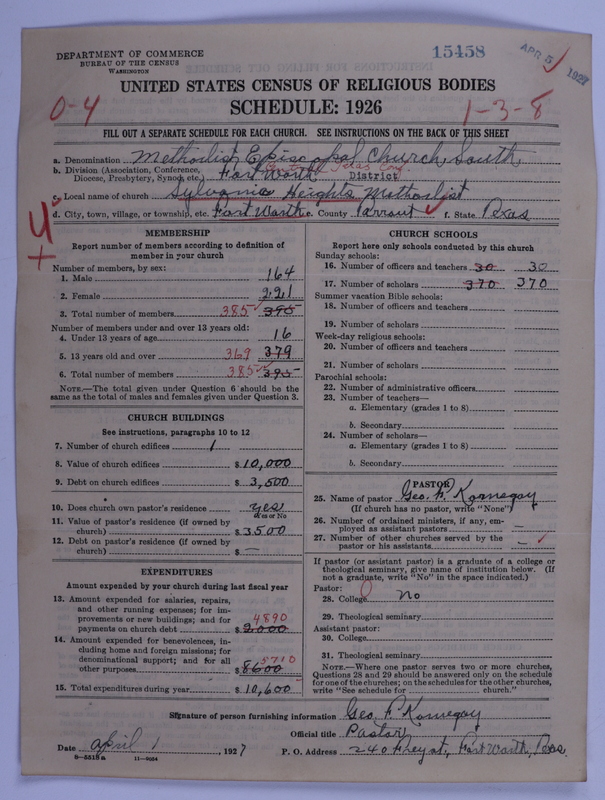 DEPARTMENT OF COMMERCE
BUREAU OF THE CENSUS
WASHINGTON
15458
APR 5 1927
UNITED STATES CENSUS OF RELIGIOUS BODIES
SCHEDULE: 1926
0-4
1-3-8
FILL OUT A SEPARATE SCHEDULE FOR EACH CHURCH. SEE INSTRUCTIONS ON THE BACK OF THIS SHEET
a. Denomination Methodist Episcopal Church, South
Central Texas Conf
b. Division (Association, Conference, Diocese, Presbytery, Synod, etc.) Fort Worth District
c. Local name of church Sylvania Heights Methodist
d. City, town, village, or township, etc. Fort Worth e. County Tarrant f. State Texas
4
+
MEMBERSHIP
Report number of members according to definition of
member in your church
Number of members, by sex:
1. Male 164
2. Female 221
3. Total number of members 385 395
Number of members under and over 13 years old:
4. Under 13 years of age 16
5. 13 years old and over 369 379
6. Total number of members 385 395
NOTE.—The total given under Question 6 should be
same as the total of males and females given under Question 3.
CHURCH BUILDINGS
See instructions, paragraphs 10 to 12
7. Number of church edifices 1
8. Value of church edifices $ 10,000
9. Debt on church edifices $ 3,500
10. Does church own pastor's residence yes
Yes or No
11. Value of pastor's residence (if owned by
church) $ 3500
12. Debt on pastor's residence (if owned by
church) $ —
EXPENDITURES
Amount expended by your church during last fiscal year
13. Amount expended for salaries, repairs,
and other running expenses; for im-
provements or new buildings; and for 4890
payments on church debt $ 2000
14. Amount expended for benevolences, in-
cluding home and foreign missions; for
denominational support; and for all 5710
other purposes $ 8600
15. Total expenditures during year $ 10,600
CHURCH SCHOOLS
Report here only schools conducted by this church
Sunday schools:
16. Number of officers and teachers 30 30
17. Number of scholars 370 370
Summer vacation Bible schools:
18. Number of officers and teachers
19. Number of scholars
Week-day religious schools:
20. Number of officers and teachers
21. Number of scholars
Parochial schools:
22. Number of administrative officers
23. Number of teachers—
a. Elementary (grades 1 to 8)
b. Secondary
24. Number of scholars—
a. Elementary (grades 1 to 8)
b. Secondary
PASTOR
25. Name of pastor Geo. F. Kornegay
(If church has no pastor, write "None")
26. Number of ordained ministers, if any, em-
ployed as assistant pastors —
27. Number of other churches served by the
pastor or his assistants —
If pastor (or assistant pastor) is a graduate of a college or
theological seminary, give name of institution below. (If
not a graduate, write "No" in the space indicated.)
Pastor:
28. College No
29. Theological seminary
Assistant pastor:
30. College
31. Theological seminary
NOTE.—Where one pastor serves two or more churches,
Questions 28 and 29 should be answered only on the schedule
for one of the churches; on the schedules for the other churches,
write "See schedule for church."
Signature of person furnishing information Geo. F. Kornegay
Official title Pastor
Date April 1, 1927 P. O. Address 240 Fort Worth, Texas.
8-5318a 11-9034